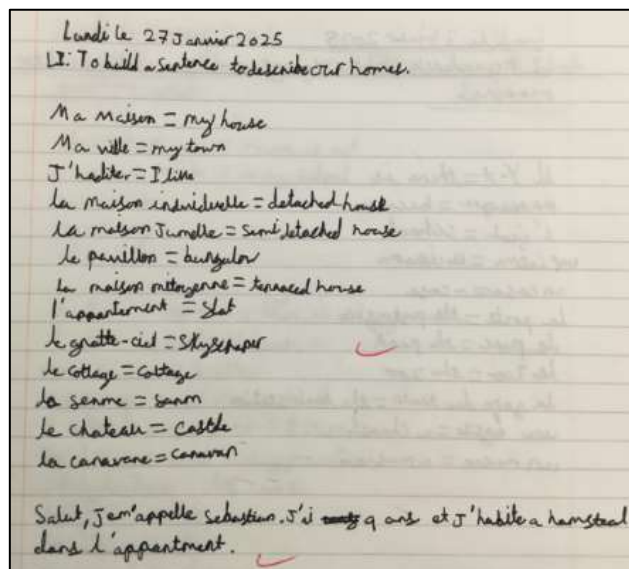 Lundi le 27 Janvier 2025
LI: To build a sentence to describe our homes.
Ma Maison = my house
Ma ville = my town
J'habiter = I live
la maison individuelle = detached house
la maison Jumelle = Semi detached house
le pavillon = bungalow
la maison mitoyenne = terraced house
l'appartement = flat
le gratte-ciel = Skyscraper
le cottage = cottage
la senme = sanm
le chateau = castle
la caravane = caravan
Salut, Je m'appelle sebastian. J'ai 9 ans et J'habite a hamstead
dans l'appartment.